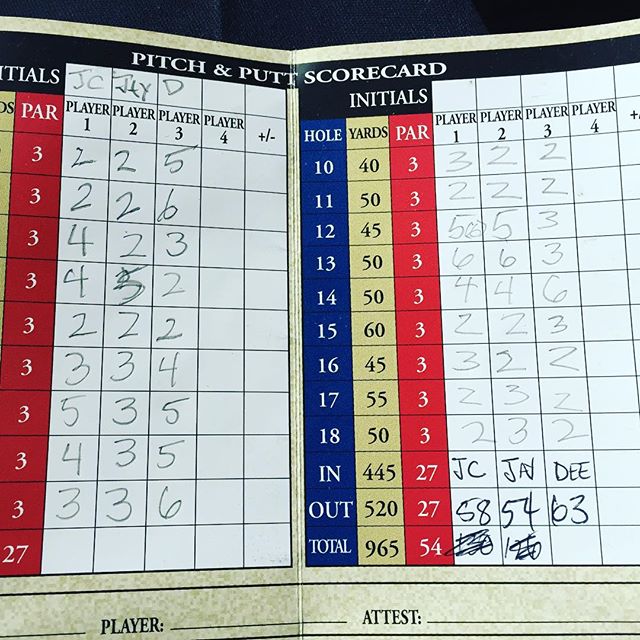 PITCH & PUTT SCORECARD
ITIALS JC JAY D
DS PAR PLAYER 1 PLAYER 2 PLAYER 3 PLAYER 4 +/-
3 2 2 5
3 2 2 6
3 4 2 3
3 4 2
3 2 2 2
3 3 3 4
3 5 3 5
3 4 3 5
3 3 3 6
27
INITIALS
HOLE YARDS PAR PLAYER 1 PLAYER 2 PLAYER 3 PLAYER 4 +/
10 40 3 3 2 2
11 50 3 2 2 2
12 45 3 5 5 3
13 50 3 6 6 3
14 50 3 4 4 6
15 60 3 2 2 3
16 45 3 3 2 2
17 55 3 2 3 2
18 50 3 2 3 2
IN 445 27 JC JAY DEE
OUT 520 27 58 54 63
TOTAL 965 54
PLAYER: ATTEST: